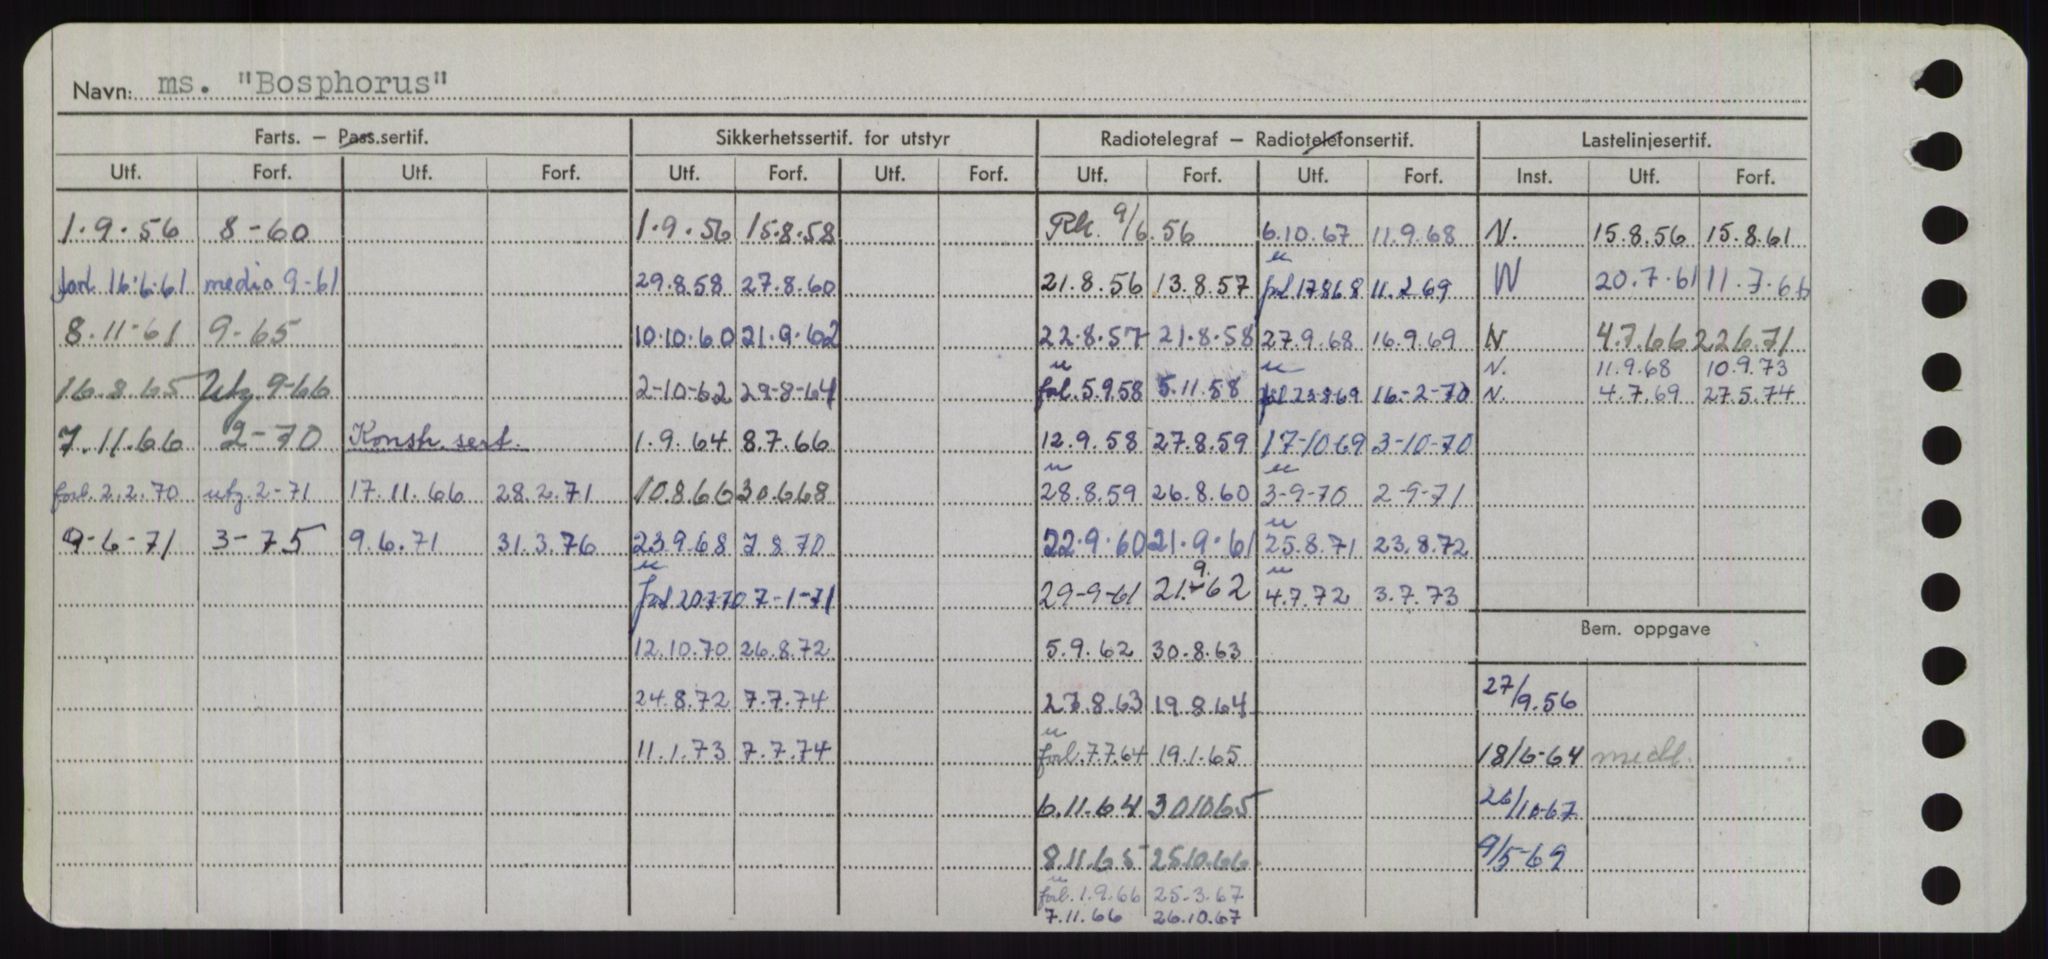 Navn: ms. "Bosphorus"
Farts. — Pass.sertif. Sikkerhetssertif. for utstyr Radiotelegraf — Radiotelefonsertif. Lastelinjesertif.
Utf. Forf. Utf. Forf. Utf. Forf. Utf. Forf. Utf. Forf. Utf. Forf. Inst. Utf. Forf.
1.9.56 8-60 1.9.56 15.8.58 Rk. 9/6.56 6.10.67 11.9.68 N. 15.8.56 15.8.61
forl. 16.6.61 medio 9-61 29.8.58 27.8.60 21.8.56 13.8.57 forl 17868 11.2 69 N 20.7.61 11.7.66
8.11-61 9-65 10.10.60 21.9.62 22.8.57 21.8.58 27.9.68 16.9.69 N 4.7.66 22671
N. 11.9.68 10.9.73
16.8.65 utg. 9-66 2-10-62 29-8-64 forl. 5.958 5.11.58 forl 23869 16-2-70 N. 4.7.69 27.5.74
7.11.66 2-70 Konstr. sert. 1.9.64 8.7.66 12.9.58 27.8.59 17-10-69 3-10-70
forl. 2.2.70 utg. 2-71 17.11.66 28.2.71 10.8.66 30668 28.8.59 26.8.60 3-9-70 2-9-71
9-6-71 3-75 9.6.71 31.3.76 23.9.68 7.8.70 22.9.60 21.9.61 25.8.71 23.8.72
forl 20770 7-1-71 29-9-61 21.9.62 4.7.72 3.7.73
Bem. oppgave
12.10.70 26.8.72 5.9.62 30.8.63
24.8.72 7.7.74 27.8.63 19.8.64 27/9.56
11.1.73 7.7.74 forl. 7.7.64 19.1.65 18/6-64 medl.
6.11.64 301065 26/10-67
8.11.65 25.10.66 9/5-69
forl. 1.9.66 25.3.67
7.11.66 26.10.67